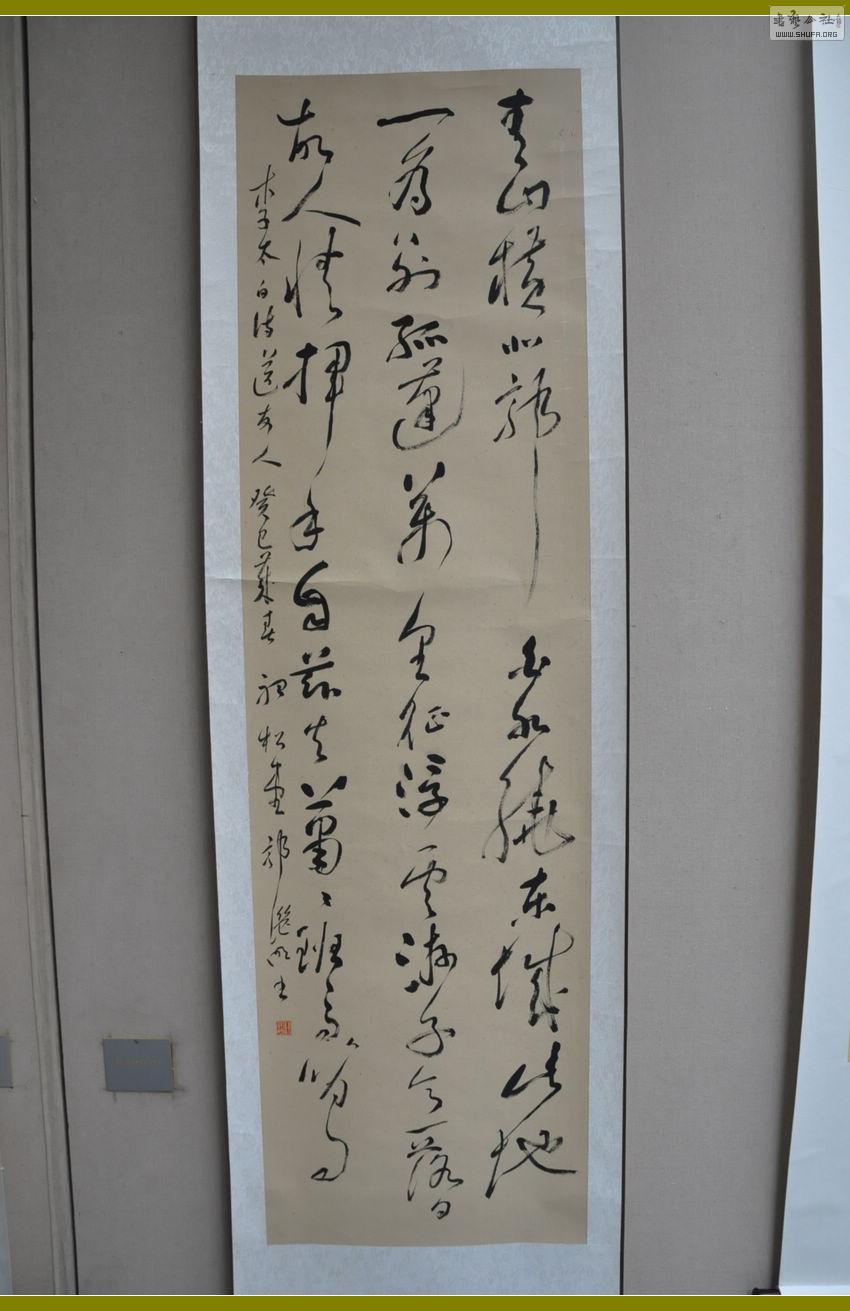 青山橫北郭白水繞東城此地
一為別孤蓬萬里征浮雲游子意落日
故人情揮手自茲去蕭〻班馬鳴
李太白詩送友人 癸巳暮春 松
书艺公社
WWW.SHUFA.ORG